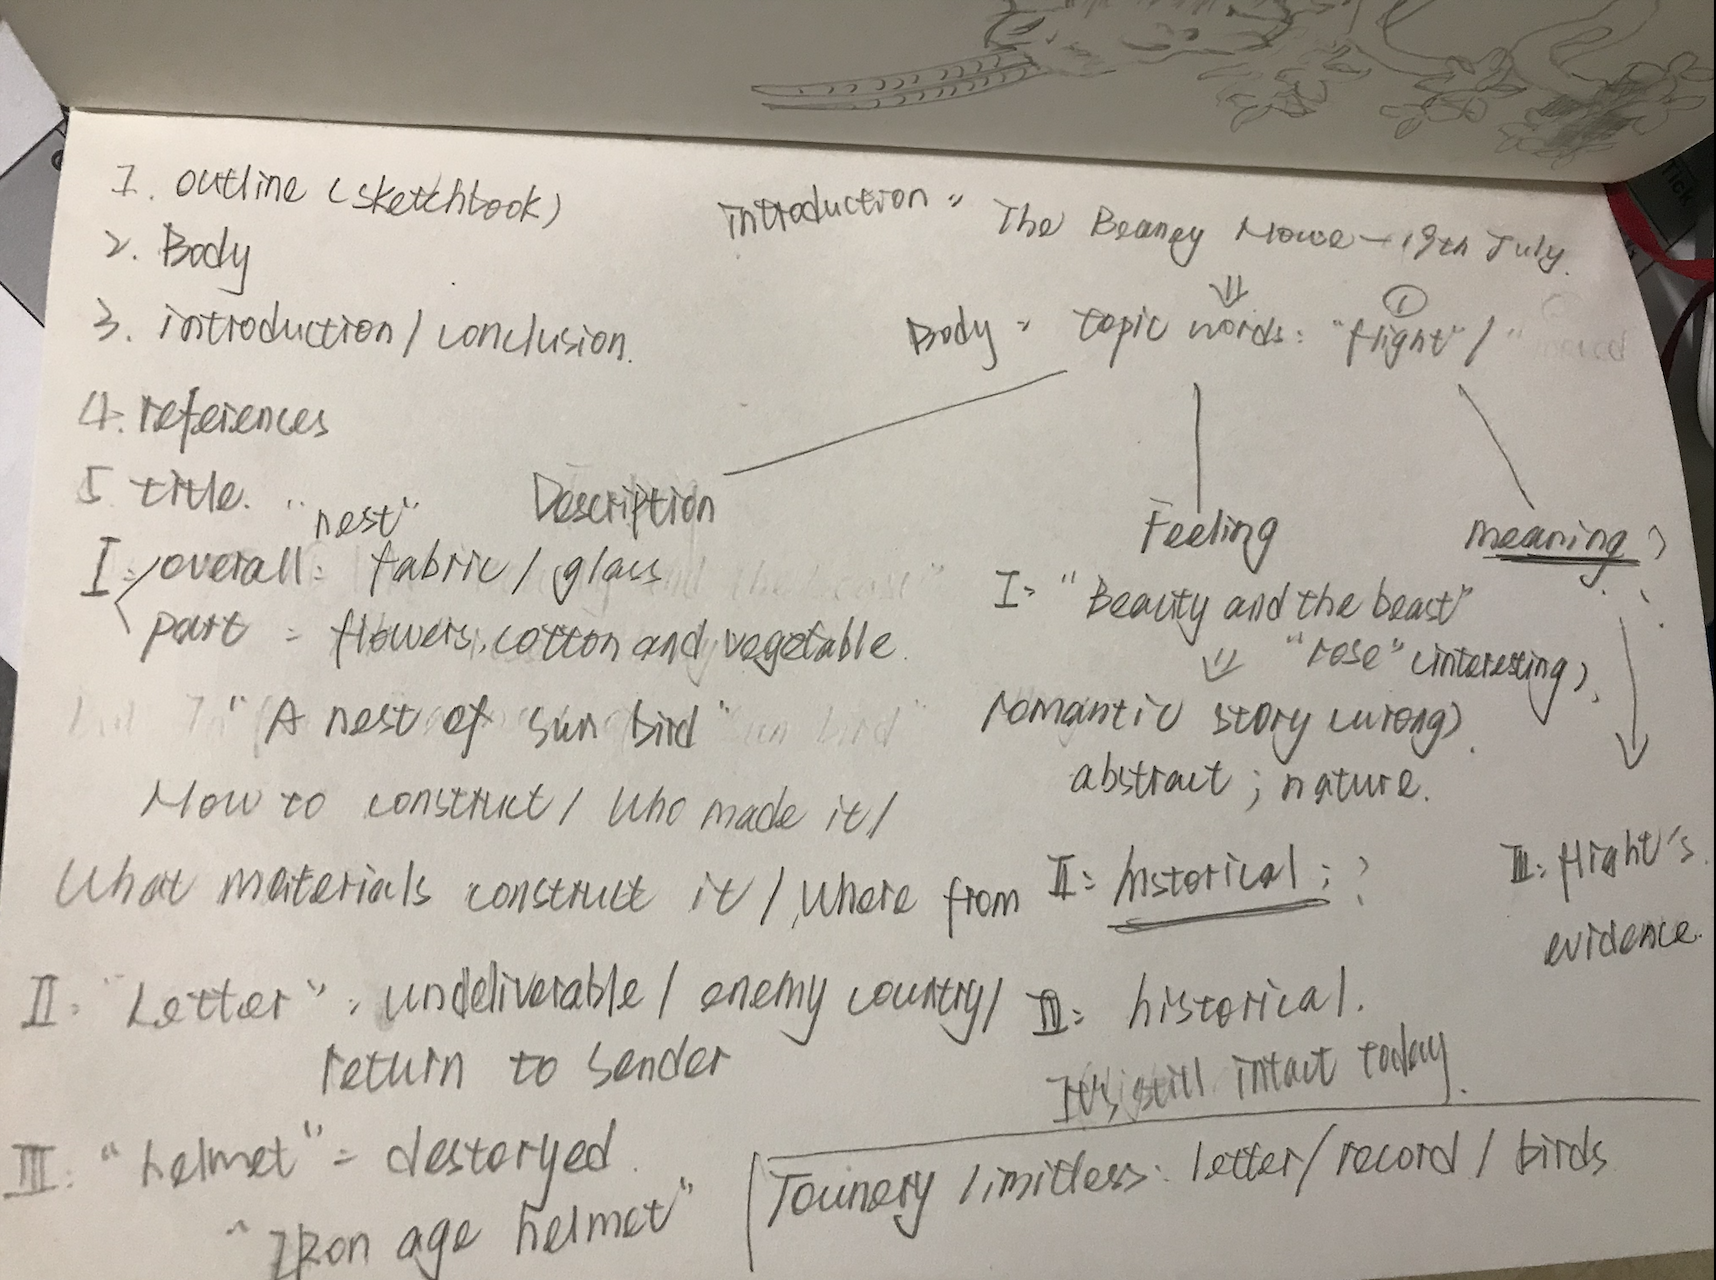 1. outline (sketchbook)
2. Body
3. introduction / conclusion.
4. references
5. title.
introduction = The Beaney House - 19th July.
Body = topic words: "flight" /
①
Description
Feeling
meaning
"nest"
I: overall: fabric / glass
part = flowers, cotton and vegetable.
"A nest of sun bird"
How to construct / Who made it /
What materials construct it / where from
II: "Letter": undeliverable / enemy country /
return to sender
III: "helmet" = destoryed.
"IRon age helmet"
I: "Beauty and the beast"
"rose" (interesting)
romantic story (wrong)
abstract ; nature.
II: historical ; ?
III: historical.
It's still intact today.
III: flight's
evidence.
Tounery limitless: letter / record / birds